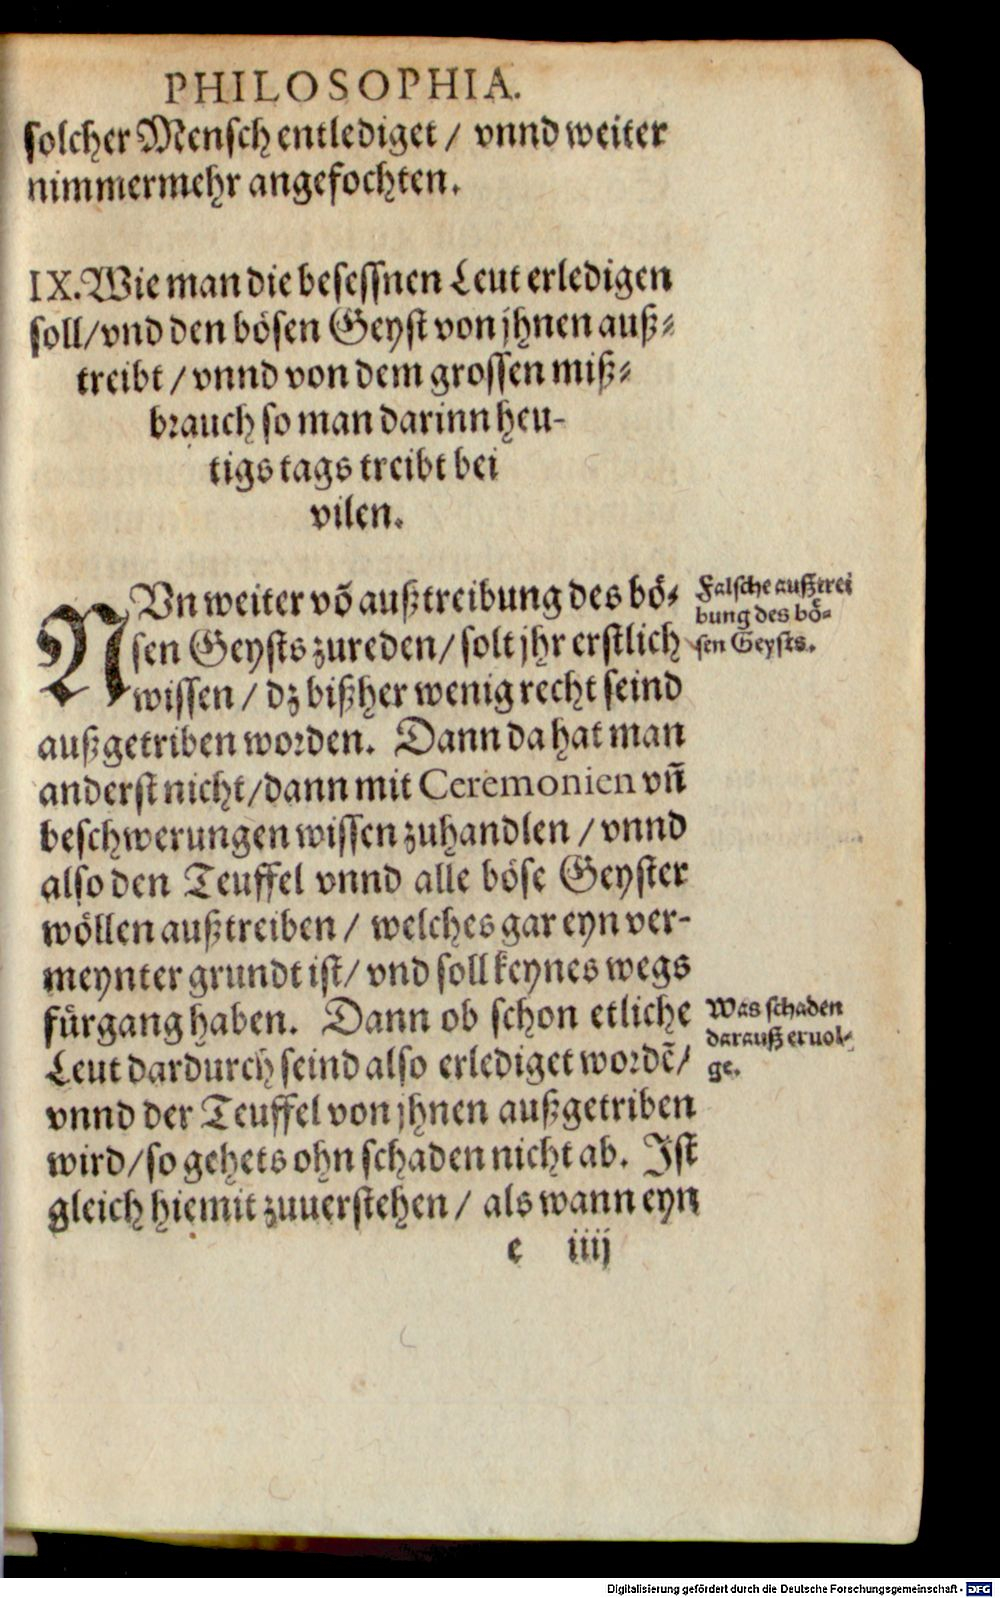 PHILOSOPHIA.
solcher Mensch entlediget / vnnd weiter
nimmermehr angefochten.
IX. Wie man die besessnen Leut erledigen
soll / vnd den bösen Geyst von jhnen auß⸗
treibt / vnnd von dem grossen miß⸗
brauch so man darinn heu-
tigs tags treibt bei
vilen.
NVn weiter võ außtreibung des bö⸗
sen Geysts zureden / solt jhr erstlich
wissen / dz bißher wenig recht seind
außgetriben worden. Dann da hat man
anderst nicht / dann mit Ceremonien vñ
beschwerungen wissen zuhandlen / vnnd
also den Teuffel vnnd alle böse Geyster
wöllen außtreiben / welches gar eyn ver-
meynter grundt ist / vnd soll keynes wegs
fürgang haben. Dann ob schon etliche
Leut dardurch seind also erlediget wordẽ /
vnnd der Teuffel von jhnen außgetriben
wird / so gehets ohn schaden nicht ab. Ist
gleich hiemit zuuerstehen / als wann eyn
e iiij
Falsche außtrei
bung des bö⸗
sen Geysts.
Was schaden
darauß eruol⸗
ge.
Digitalisierung gefördert durch die Deutsche Forschungsgemeinschaft - DFG